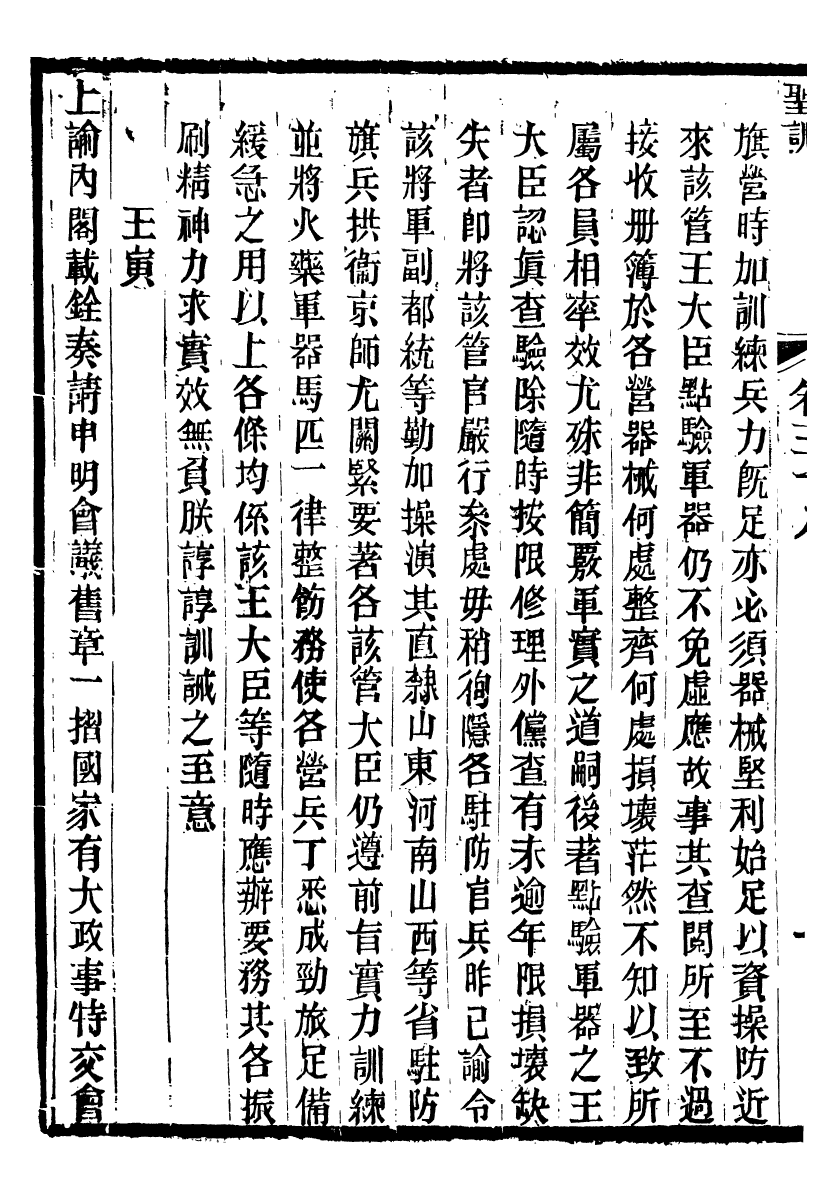 聖訓
旗營時加訓練兵力旣足亦必須器械堅利始足以資操防近
來該管王大臣點驗軍器仍不免虛應故事其查閱所至不過
接收册簿於各營器械何處整齊何處損壞茫然不知以致所
屬各員相率效尤殊非簡覈軍實之道嗣後著點驗軍器之王
大臣認眞查驗除隨時按限修理外儻查有未逾年限損壞缺
失者卽將該管官嚴行叅處毋稍徇隱各駐防官兵昨已諭令
該將軍副都統等勤加操演其直隸山東河南山西等省駐防
旗兵拱衞京師尤關緊要著各該管大臣仍遵前旨實力訓練
並將火藥軍器馬匹一律整飭務使各營兵丁悉成勁旅足備
緩急之用以上各條均係該王大臣等隨時應辦要務其各振
刷精神力求實效無負朕諄諄訓誡之至意
王寅
上諭內閣載銓奏請申明會議舊章一摺國家有大政事特交會